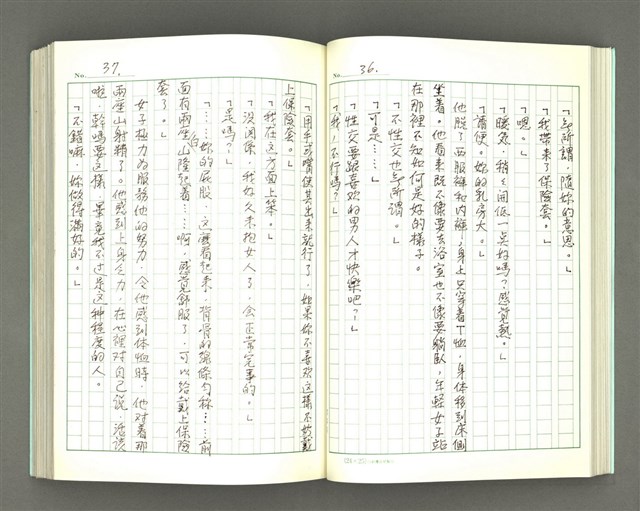 No. 36.
「無所謂，隨妳的意思。」
「我帶來了保險套。」
「嗯。」
「暖氣，稍々調低一点好嗎？感覺熱。」
「請便。她的乳房大。」
他脫了西服褲和內褲，身上只穿着T恤，身体移到床側
坐着。他看來既不像要去浴室也不像要躺臥，年輕女子站
在那裡不知如何是好的樣子。
「不性交也無所謂。」
「可是……」
「性交要跟喜歡的男人才快樂吧？」
「我，不行嗎？」
No. 37.
「用手或嘴使其出來就行了，如果妳不喜歡這樣不妨戴
上保險套。」
「我在這方面上笨。」
「沒関係，我好久未抱女人了，会正常完事的。」
「是嗎？」
「……妳的屁股，這麼看起來，背脊的線條勻稱……前
面有兩座山隆起着……啊，感覺舒服了，可以給我戴上保險
套了。」
女子極力為服務他的努力，令他感到体恤時，他対着那
兩座山射精了。他感到上身乏力，在心裡対自己說，活該
啦，幹嗎要這樣，畢竟我不过是這種程度的人。
「不錯嘛，妳做得滿好的。」